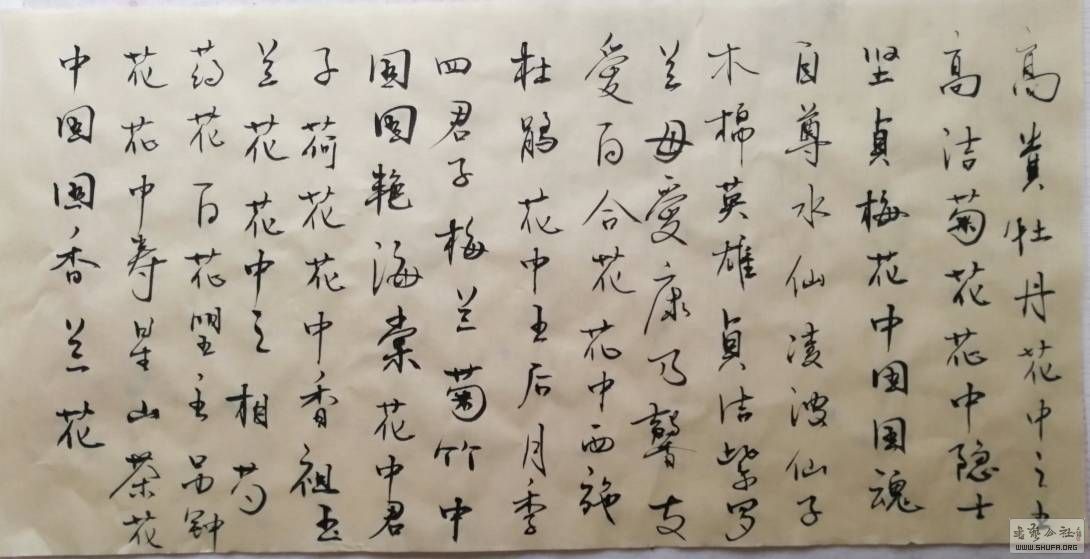 高贵牡丹花中之王
高洁菊花花中隐士
坚贞梅花中国国魂
自尊水仙凌波仙子
木棉英雄贞洁紫罗
兰母爱康乃馨友
爱百合花花中西施
杜鹃花中王后月季
四君子梅兰菊竹中
国国艳海棠花中君
子荷花花中香祖玉
兰花花中之相芍
药花百花盟主吊钟
花花中寿星山茶花
中国国香兰花
WWW.SHUFA.ORG